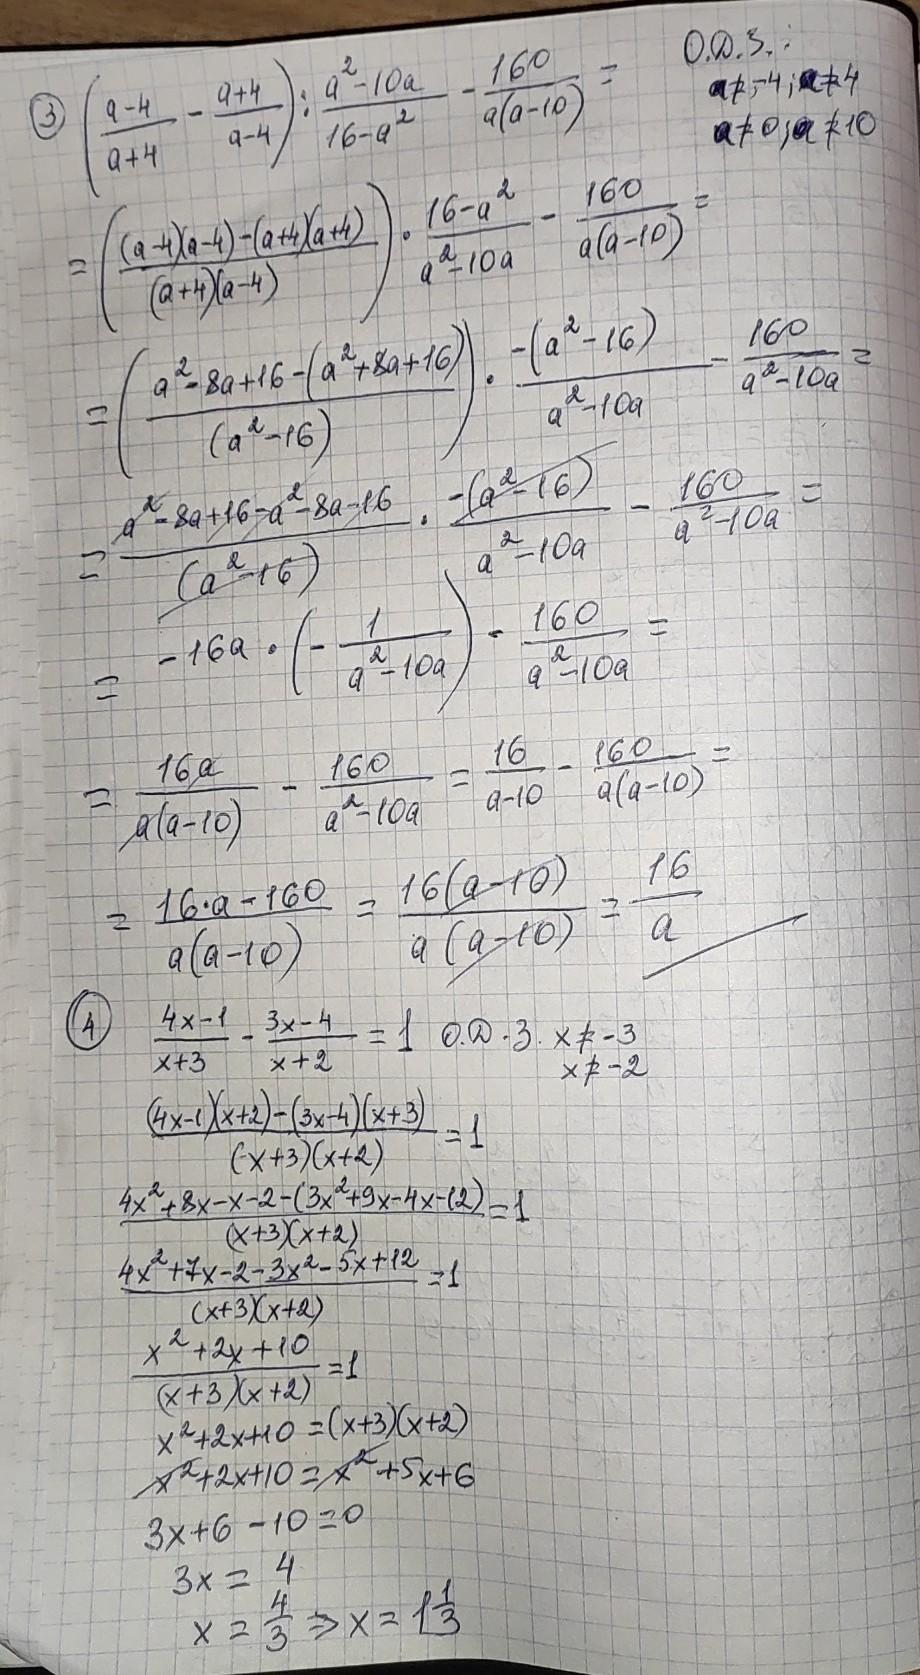 ③ ((a-4)/(a+4) - (a+4)/(a-4)) : (a²-10a)/(16-a²) - 160/(a(a-10)) = О.Д.З.:
a≠-4; a≠4
a≠0; a≠10
= (((a-4)(a-4)-(a+4)(a+4))/((a+4)(a-4))) · (16-a²)/(a²-10a) - 160/(a(a-10)) =
= ((a²-8a+16-(a²+8a+16))/(a²-16)) · (-(a²-16))/(a²-10a) - 160/(a²-10a) =
= (a²-8a+16-a²-8a-16)/(a²-16) · (-(a²-16))/(a²-10a) - 160/(a²-10a) =
= -16a · (-1/(a²-10a)) - 160/(a²-10a) =
= 16a/(a(a-10)) - 160/(a²-10a) = 16/(a-10) - 160/(a(a-10)) =
= (16·a-160)/(a(a-10)) = (16(a-10))/(a(a-10)) = 16/a
④ (4x-1)/(x+3) - (3x-4)/(x+2) = 1 О.Д.З. x≠-3
x≠-2
((4x-1)(x+2)-(3x-4)(x+3))/((x+3)(x+2)) = 1
(4x²+8x-x-2-(3x²+9x-4x-12))/((x+3)(x+2)) = 1
(4x²+7x-2-3x²-5x+12)/((x+3)(x+2)) = 1
(x²+2x+10)/((x+3)(x+2)) = 1
x²+2x+10 = (x+3)(x+2)
x²+2x+10 = x²+5x+6
3x+6-10=0
3x = 4
x = 4/3 ⇒ x = 1 1/3